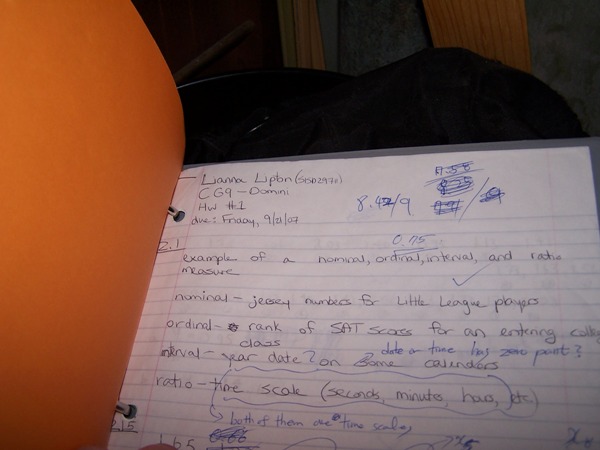 Lianna Lipton (
CG9 - Domini
HW #1
due: Friday, 9/21/07
8.42/9
2.1
0.75
example of a nominal, ordinal, interval, and ratio
measure
nominal - jersey numbers for Little League players
ordinal - rank of SAT scores for an entering college
class
interval - year date? on some calendars
date or time has zero point?
ratio - time scale (seconds, minutes, hours, etc)
both of them are time scales
2.15